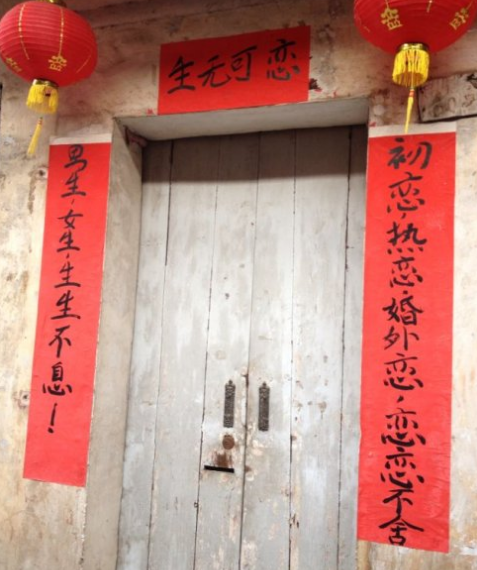 生无可恋
初恋，热恋，婚外恋，恋恋不舍
男生，女生，生生不息！